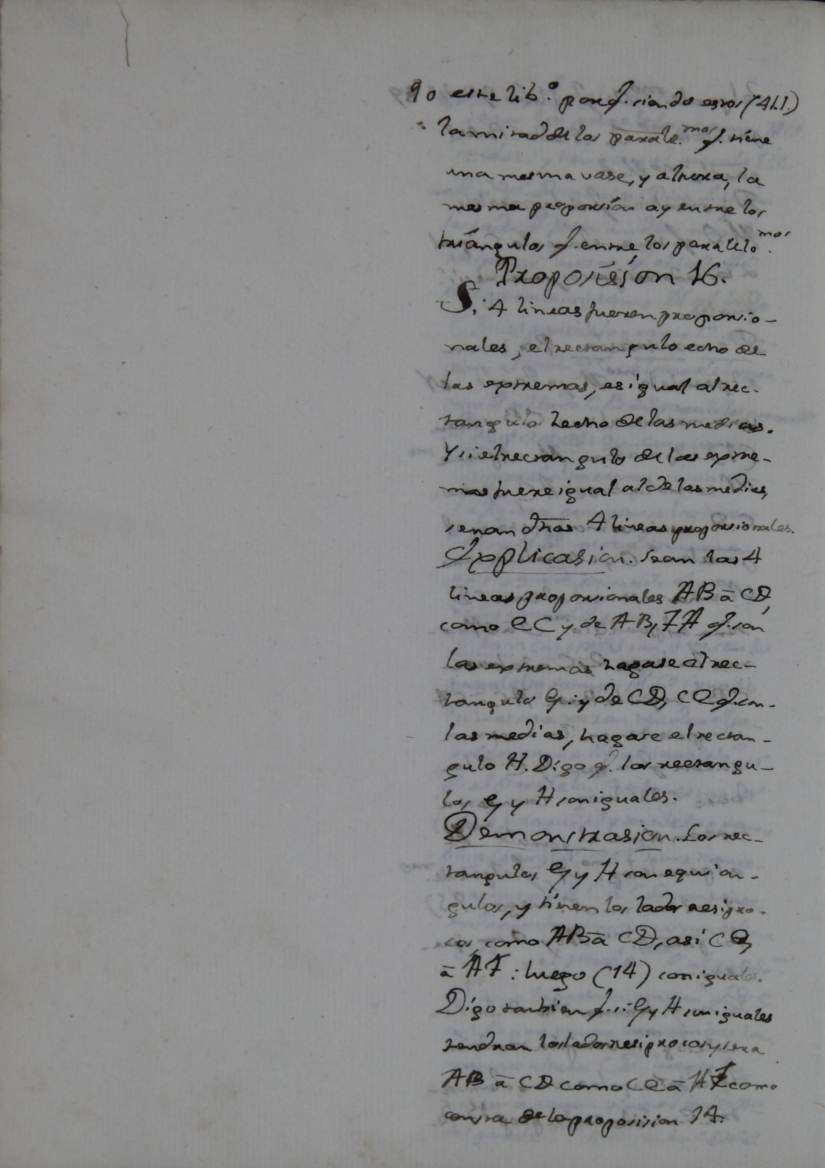 este lib.º porq. siendo estos (41.1.)
la mitad de los parale.mos q. tiene
una mesma vase, y altura, la
mesma proporsión ay entre los
triángulos q. entre los paralelo.mos
Proposisión 16.
Si 4 lineas fueren proporsio-
nales, el rectangulo echo de
las extremas, es igual al rec-
tangulo hecho de las medias.
Y si el rectangulo de las extre-
mas fuere igual al de las medias,
seran dhas 4 lineas proporsionales.
Explicasion. Sean las 4
lineas proporsionales AB à CD
como y de AB, FA q. són
las extremas hagase el rec-
tangulo G: y de CD, CE q. son
las medias, hagase el rectan-
gulo H. Digo q. los rectangu-
los G y H son iguales.
Demonstrasion. Los rec-
tangulos G y H son equian-
gulos, y tienen los lados resipro-
cos, como AB à CD, asi CE,
à AF: luego (14) son iguales.
Digo tambien q. si G y H son iguales
tendran los lados resiprocos y sera
AB à CD como CE à como
consta de la proposision 14.